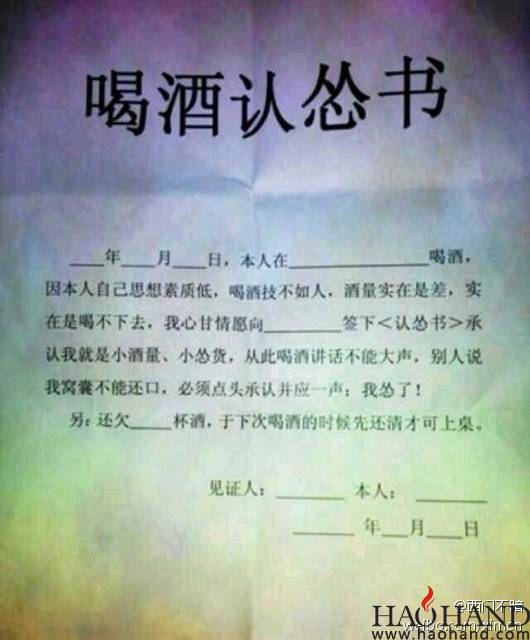 喝酒认怂书
____年____月____日，本人在______________喝酒，
因本人自己思想素质低，喝酒技不如人，酒量实在是差，实
在是喝不下去，我心甘情愿向________签下<认怂书>承
认我就是小酒量、小怂货，从此喝酒讲话不能大声，别人说
我窝囊不能还口，必须点头承认并应一声：我怂了！
另：还欠____杯酒，于下次喝酒的时候先还清才可上桌。
见证人：_______ 本人：_______
______年___月____日
@西门不暗
HAOHAND
www.haohand.com